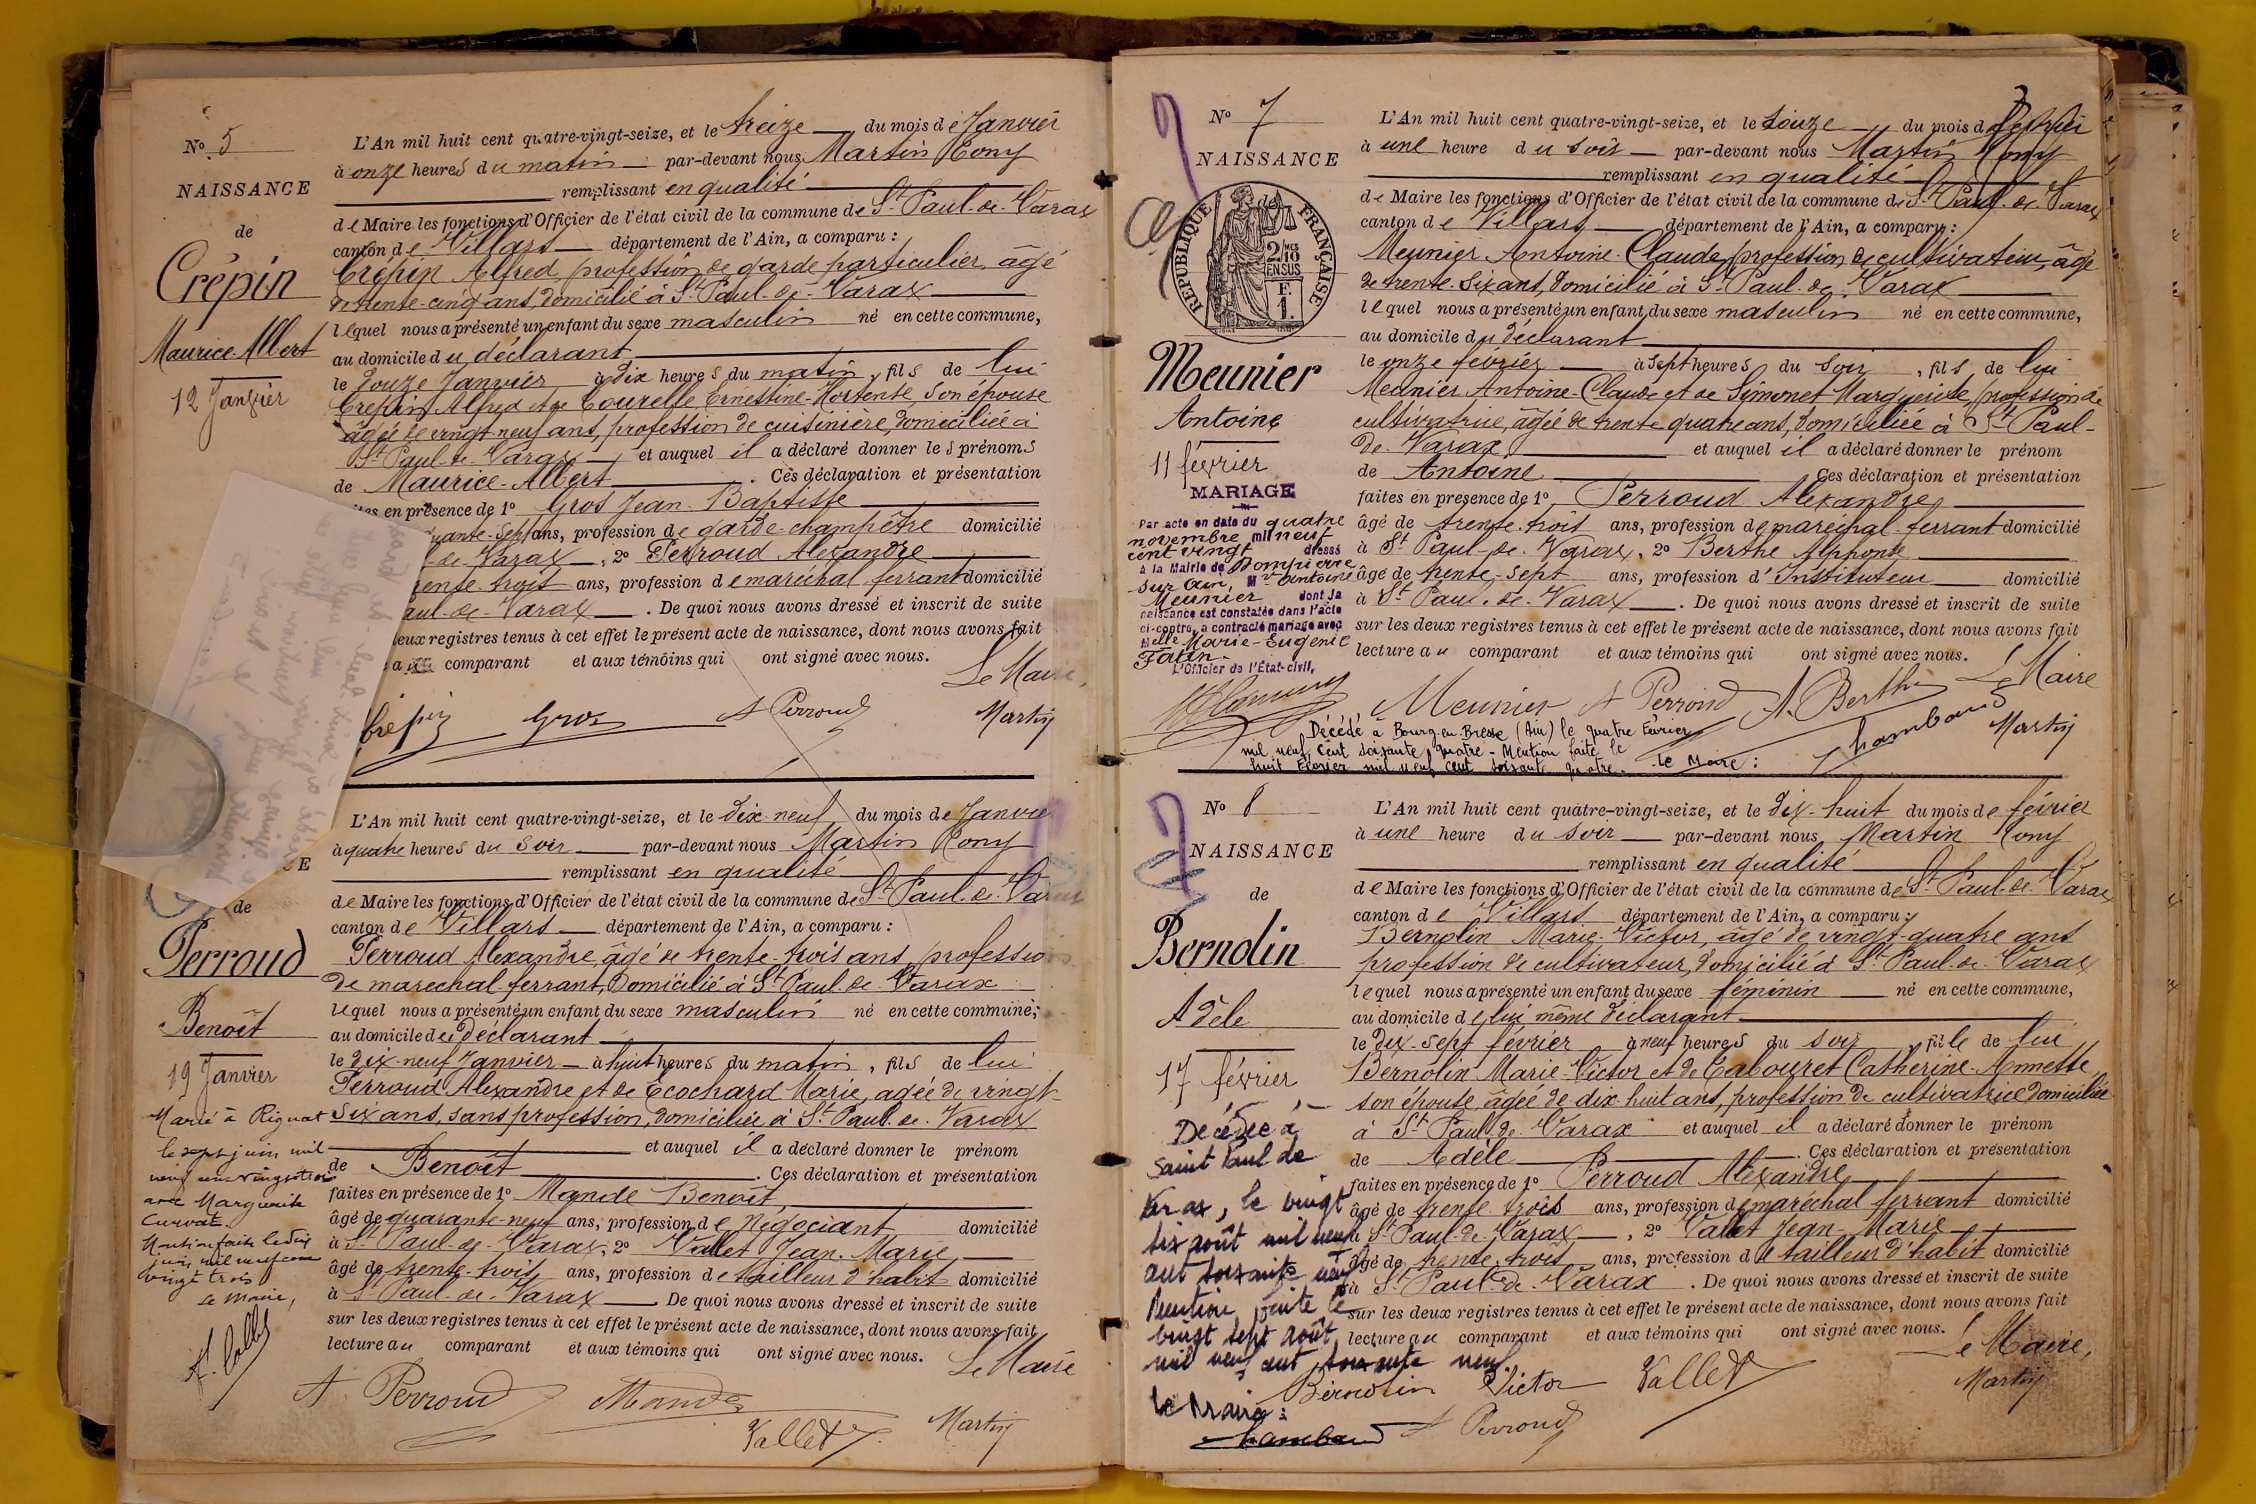 No 5
NAISSANCE
de
Crépin
Maurice-Albert
12 Janvier
L'An mil huit cent quatre-vingt-seize, et le treize du mois de Janvier
à onze heures du matin par-devant nous Martin Rony
remplissant en qualité
de Maire les fonctions d'Officier de l'état civil de la commune de St Paul-de-Varax
canton de Villars département de l'Ain, a comparu :
Crépin Alfred, profession de garde particulier, âgé
de trente-cinq ans, domicilié à St Paul-de-Varax
lequel nous a présenté un enfant du sexe masculin né en cette commune,
au domicile du déclarant
le douze Janvier à dix heures du matin, fils de lui
Crépin Alfred et de Courelle Ernestine-Hortense, son épouse
âgée de vingt-neuf ans, profession de cuisinière, domiciliée à
St Paul-de-Varax et auquel il a déclaré donner les prénoms
de Maurice-Albert. Ces déclaration et présentation
en présence de 1o Gros Jean-Baptiste
ans, profession de garde-champêtre domicilié
de Varax, 2o Perroud Alexandre
trois ans, profession de maréchal ferrant domicilié
de Varax. De quoi nous avons dressé et inscrit de suite
registres tenus à cet effet le présent acte de naissance, dont nous avons fait
comparant et aux témoins qui ont signé avec nous.
Le Maire,
Crépin Gros A Perroud Martin
de
Perroud
Benoît
19 Janvier
Marié à Rignat
le sept juin mil
neuf cent vingt trois
avec Marguerite
Curvat.
Mention faite le dix
juin mil neuf cent
vingt trois
Le Maire,
L'An mil huit cent quatre-vingt-seize, et le dix-neuf du mois de Janvier
à quatre heures du soir par-devant nous Martin Rony
remplissant en qualité
de Maire les fonctions d'Officier de l'état civil de la commune de St Paul-de-Varax
canton de Villars département de l'Ain, a comparu :
Perroud Alexandre, âgé de trente-trois ans, profession
de marechal ferrant, domicilié à St Paul-de-Varax
lequel nous a présenté un enfant du sexe masculin né en cette commune,
au domicile du déclarant
le dix-neuf Janvier à huit heures du matin, fils de lui
Perroud Alexandre et de Ecochard Marie, agée de vingt-
six ans, sans profession, domiciliée à St Paul-de-Varax
et auquel il a déclaré donner le prénom
de Benoît. Ces déclaration et présentation
faites en présence de 1o Mande Benoît,
âgé de quarante-neuf ans, profession de Négociant domicilié
à St Paul-de-Varax, 2o Vallet Jean-Marie
âgé de trente-trois ans, profession de tailleur d'habit domicilié
à St Paul-de-Varax. De quoi nous avons dressé et inscrit de suite
sur les deux registres tenus à cet effet le présent acte de naissance, dont nous avons fait
lecture au comparant et aux témoins qui ont signé avec nous.
Le Maire
A Perroud Mande Vallet Martin
No 7
NAISSANCE
RÉPUBLIQUE FRANÇAISE
2/10 EN SUS
F. 1.
Meunier
Antoine
11 février
MARIAGE
Par acte en date du quatre
novembre mil neuf
cent vingt dressé
à la Mairie de Dompierre
sur Ain, Mr Antoine
Meunier dont la
naissance est constatée dans l'acte
ci-contre, a contracté mariage avec
Melle Marie-Eugénie
L'Officier de l'État-civil,
L'An mil huit cent quatre-vingt-seize, et le douze du mois de février
à une heure du soir par-devant nous Martin Rony
remplissant en qualité
de Maire les fonctions d'Officier de l'état civil de la commune de St Paul-de-Varax
canton de Villars département de l'Ain, a comparu :
Meunier Antoine-Claude, profession de cultivateur, âgé
de trente-six ans, domicilié à St Paul-de-Varax
lequel nous a présenté un enfant du sexe masculin né en cette commune,
au domicile du déclarant
le onze février à sept heures du soir, fils de lui
Meunier Antoine-Claude et de Simonet Marguerite, profession de
cultivatrice, âgée de trente quatre ans, domiciliée à St Paul-
de-Varax et auquel il a déclaré donner le prénom
de Antoine Ces déclaration et présentation
faites en présence de 1o Perroud Alexandre
âgé de trente-trois ans, profession de maréchal-ferrant domicilié
à St Paul-de-Varax, 2o Berthe Alphonse
âgé de trente-sept ans, profession d'Instituteur domicilié
à St Paul-de-Varax. De quoi nous avons dressé et inscrit de suite
sur les deux registres tenus à cet effet le présent acte de naissance, dont nous avons fait
lecture au comparant et aux témoins qui ont signé avec nous.
Le Maire
Meunier A Perroud A. Berthe Martin
Décédé à Bourg-en-Bresse (Ain) le quatre Février
mil neuf cent soixante quatre - Mention faite le
huit Février mil neuf cent soixante quatre. Le Maire : Chambaud
No 8
NAISSANCE
de
Bernolin
Adèle
17 février
Décédée à
Saint Paul de
Varax, le vingt
six août mil neuf
cent soixante neuf
Mention faite le
vingt sept août
mil neuf cent soixante neuf.
Le Maire :
Chambaud
L'An mil huit cent quatre-vingt-seize, et le dix-huit du mois de février
à une heure du soir par-devant nous Martin Rony
remplissant en qualité
de Maire les fonctions d'Officier de l'état civil de la commune de St Paul-de-Varax
canton de Villars département de l'Ain, a comparu :
Bernolin Marie-Victor, âgé de vingt-quatre ans
profession de cultivateur, domicilié à St Paul-de-Varax
lequel nous a présenté un enfant du sexe féminin né en cette commune,
au domicile de lui même déclarant
le dix-sept février à neuf heures du soir, fille de lui
Bernolin Marie-Victor et de Cabouret Catherine-Annette,
son épouse âgée de dix-huit ans, profession de cultivatrice domiciliée
à St Paul-de-Varax et auquel il a déclaré donner le prénom
de Adèle. Ces déclaration et présentation
faites en présence de 1o Perroud Alexandre
âgé de trente trois ans, profession de maréchal ferrant domicilié
à St Paul-de-Varax, 2o Vallet Jean-Marie
âgé de trente-trois ans, profession de tailleur d'habit domicilié
à St Paul-de-Varax. De quoi nous avons dressé et inscrit de suite
sur les deux registres tenus à cet effet le présent acte de naissance, dont nous avons fait
lecture au comparant et aux témoins qui ont signé avec nous.
Le Maire,
Bernolin Victor Vallet Martin
A Perroud